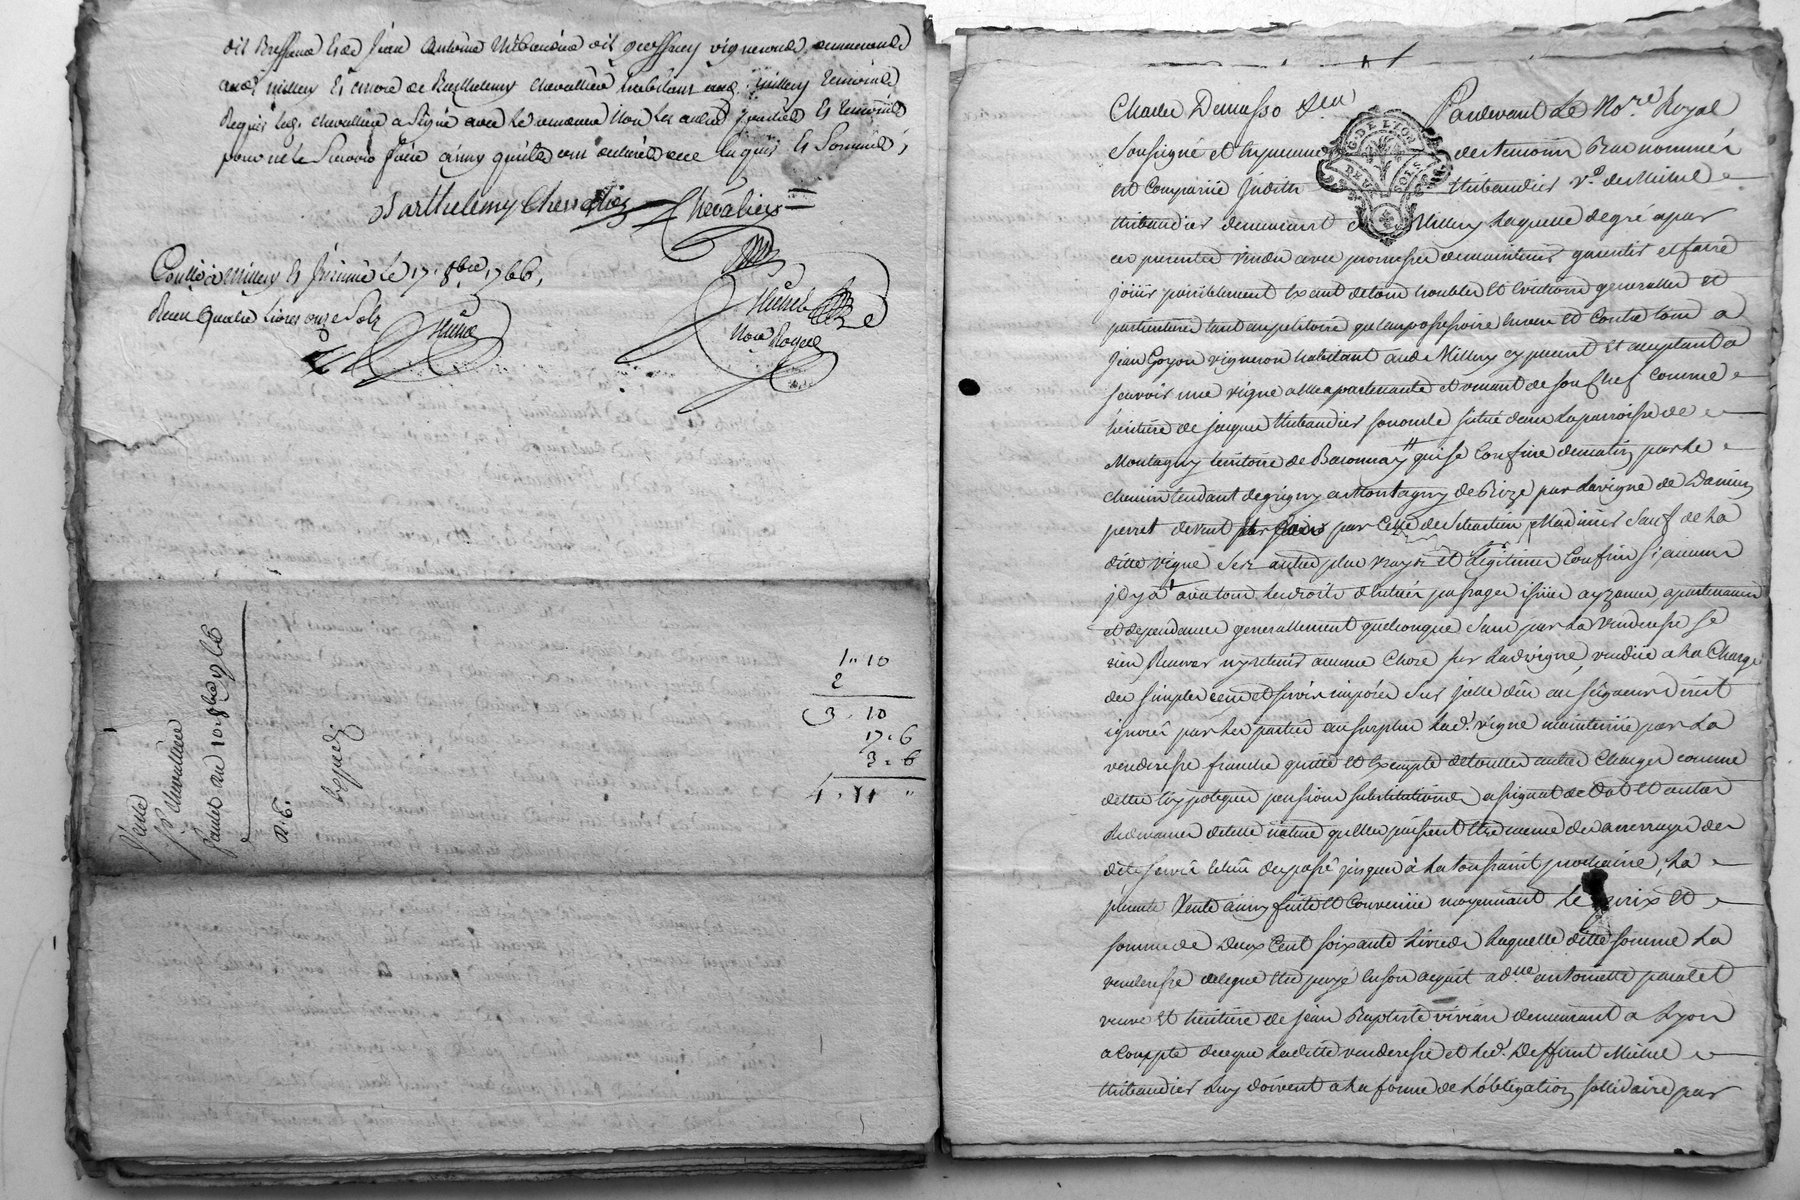 dit Bressand et de jean Antoine Thibaudier dit geoffray vignerons demeurants
aud. millery et encore de Barthelemy chevallier habitans aud. millery temoins
Requis led. chevallier a signé avec le vendeur non les autres parties et temoins
pour ne le sçavoir faire ainsy qu'ils ont declaré de ce enquis et sommés,
Barthelemy Chevallier Chevalier
Controllé à Millery et le 17. 8bre 1766.
Reçu Quatre Livres onze Sols
Not. Royal
Vente
Chevallier
Pautet du 10. 8bre 1766
R. 6.
Expedié
1 " 10
2
3 . 10
17 . 6
3 . 6
4 . 11 "
G. DE LYON
DEUX SOLS
Charles Demasso Pardevant Le No.re Royal
soussigné et en presence des temoins Bas nommés
est Comparüe Judith thibaudier v.e de Michel
thibaudier demeurant a Millery Laquelle de gré a par
ces presentes vendu avec promesse de maintenir garentir et faire
joüir paisiblement Exant de tous troubles et Evictions generalles et
particulieres tant au petitoire qu'au possessoire Envers et Contre tous a
Jean Goyon vigneron habitant aud. Millery cy present et acceptant a
sçavoir une vigne a elle apartenante et venant de son chef comme
héritiere de jacque thibaudier son oncle située dans La parroisse de
Montagny territoire de Baconnay qui se Confine de matin par Le
chemin tendant de grigny a Montagny de Bize par La vigne de Damien
perret de vent par Celle de Sebastien Mad sauf de La
ditte vigne ses autres plus vrays et Légitimes Confins si aucuns
il y a avec tous ses droits d'entrées passages issües ayzances apartenances
et dependances generallement quelconques sans par La Venderesse se
rien Reserver ny retenir aucune Chose sur lad. vigne, vendüe a La Charge
des simples cens et servis imposés sur jcelle dûs au seigneur direct
ignoré par Les parties au surplus Lad. vigne maintenüe par La
venderesse franche quitte et Exempte de touttes autres Charges comme
dettes hyppoteques pensions substitutions assignat de Dot et autres
Redevances de telle nature qu'elles puissent être meme des arrerages des
dits servis cens du passé jusques à La toussaint prochaine, La
presente Vente ainsy faitte et Convenüe moyennant Le prix et
somme de Deux Cent soixante Livres Laquelle ditte somme La
venderesse delegue être payé en son acquit a d.lle antoinette paulet
veuve et héritiere de jean Baptiste vivian demeurant a Lyon
a Compte de ce que La ditte venderesse et Led. Deffunt Michel
thibaudier Luy doivent a La forme de L'obligation sollidaire par